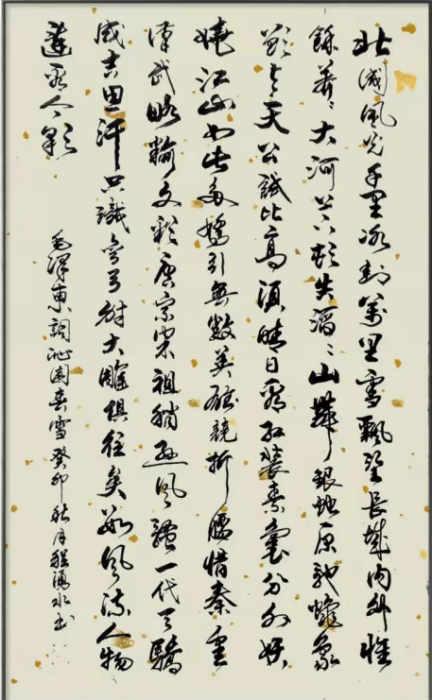 北國風光千里冰封萬里雪飄望長城内外惟
餘莽〻大河上下頓失滔〻山舞銀蛇原馳蠟象
欲與天公試比高須晴日看紅裝素裹分外妖
嬈江山如此多嬌引無數英雄競折腰惜秦皇
漢武略輸文彩唐宗宋祖稍遜風騷一代天驕
成吉思汗只識彎弓射大雕俱往矣數風流人物
還看今朝
毛澤東詞沁園春雪癸卯秋月程水書